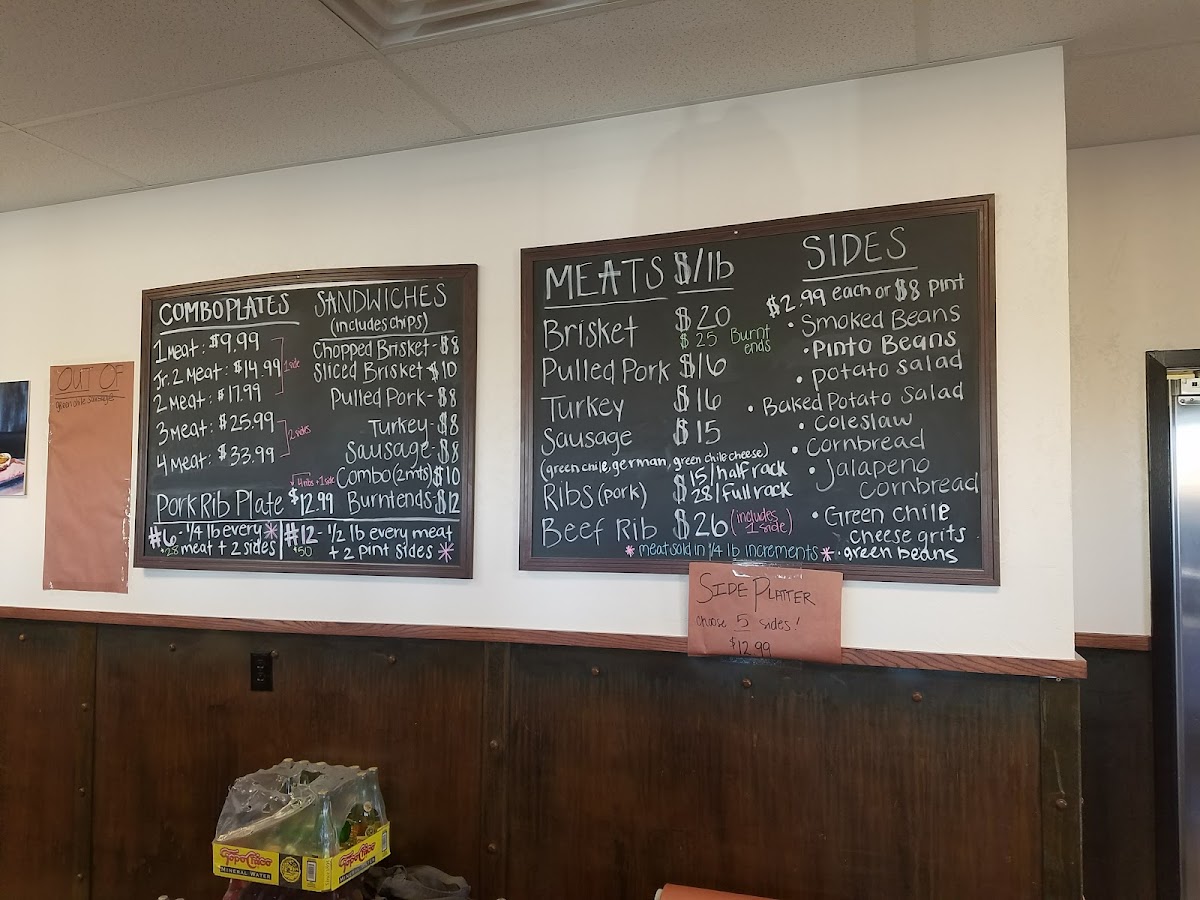 OUT OF
green chile sausage
COMBO PLATES
1 Meat: $9.99
Jr. 2 Meat: $14.99
2 Meat: $17.99
1 side
3 Meat: $25.99
4 Meat: $33.99
2 sides
Pork Rib Plate $12.99
4 ribs + 1 side
#6 - 1/4 lb every *
$28 meat + 2 sides
#12 - 1/2 lb every meat
$50 + 2 pint sides *
SANDWICHES
(includes chips)
Chopped Brisket - $8
Sliced Brisket $10
Pulled Pork - $8
Turkey - $8
Sausage - $8
Combo (2 mts) $10
Burnt ends $12
MEATS $/lb
Brisket $20
$25 Burnt
ends
Pulled Pork $16
Turkey $16
Sausage $15
(green chile, german, green chile cheese)
Ribs (pork) $15/half rack
28/full rack
Beef Rib $26 (includes
1 side)
* meat sold in 1/4 lb increments *
SIDES
$2.99 each or $8 pint
• Smoked Beans
• Pinto Beans
• potato salad
• Baked Potato Salad
• Coleslaw
• Cornbread
• Jalapeno
Cornbread
• Green chile
cheese grits
• green beans
SIDE PLATTER
choose 5 sides!
$12.99
Topo Chico
MINERAL WATER
Topo Chico
MINERAL WATER